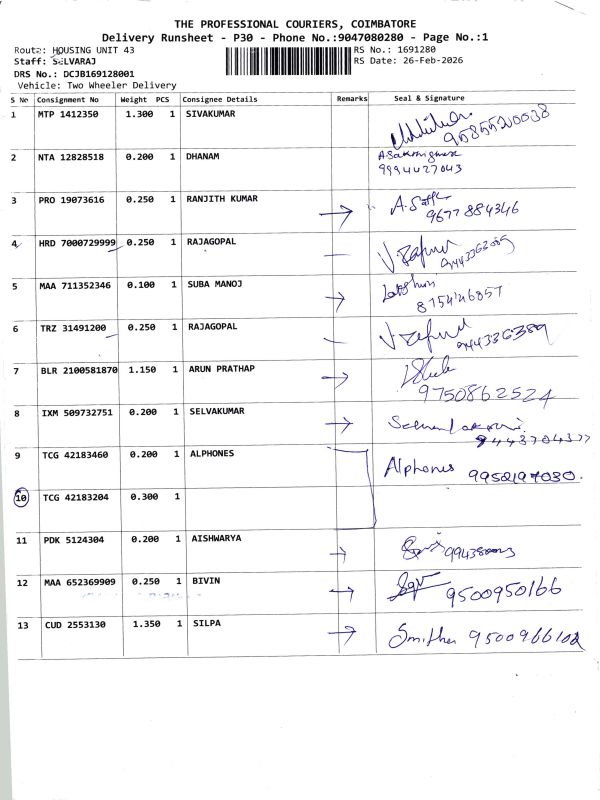 THE PROFESSIONAL COURIERS, COIMBATORE
Delivery Runsheet - P30 - Phone No.:9047080280 - Page No.:1
Route: HOUSING UNIT 43 RS No.: 1691280
Staff: SELVARAJ RS Date: 26-Feb-2026
DRS No.: DCJB169128001
Vehicle: Two Wheeler Delivery
S No Consignment No Weight PCS Consignee Details Remarks Seal & Signature
1 MTP 1412350 1.300 1 SIVAKUMAR
9585520038
2 NTA 12828518 0.200 1 DHANAM
9994427043
3 PRO 19073616 0.250 1 RANJITH KUMAR
9677884346
4 HRD 7000729999 0.250 1 RAJAGOPAL
5 MAA 711352346 0.100 1 SUBA MANOJ
6 TRZ 31491200 0.250 1 RAJAGOPAL
7 BLR 2100581870 1.150 1 ARUN PRATHAP
9750862524
8 IXM 509732751 0.200 1 SELVAKUMAR
9 TCG 42183460 0.200 1 ALPHONES Alphones 9952197030.
10 TCG 42183204 0.300 1
11 PDK 5124304 0.200 1 AISHWARYA
12 MAA 652369909 0.250 1 BIVIN 9500950166
13 CUD 2553130 1.350 1 SILPA Smitha 9500966102